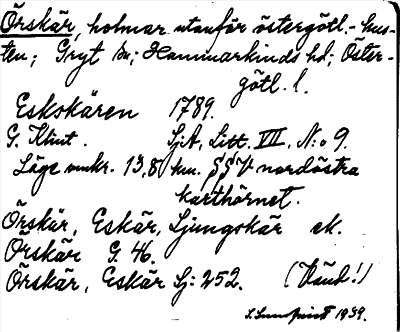 Örskär, holmar utanför östergötl.-kus-
ten; Gryt sn; Hammarkinds hd; Öster-
götl. l.
Eskskären 1789.
G. Klint. SjA, Litt. VII, N:o 9.
Läge omkr. 13,8 km. SSV nordöstra
karthörnet.
Örskär, Eskär, Ljungskär ek.
Örskär G. 46.
Örskär, Eskär Sj: 252. (Känd!)
1939.